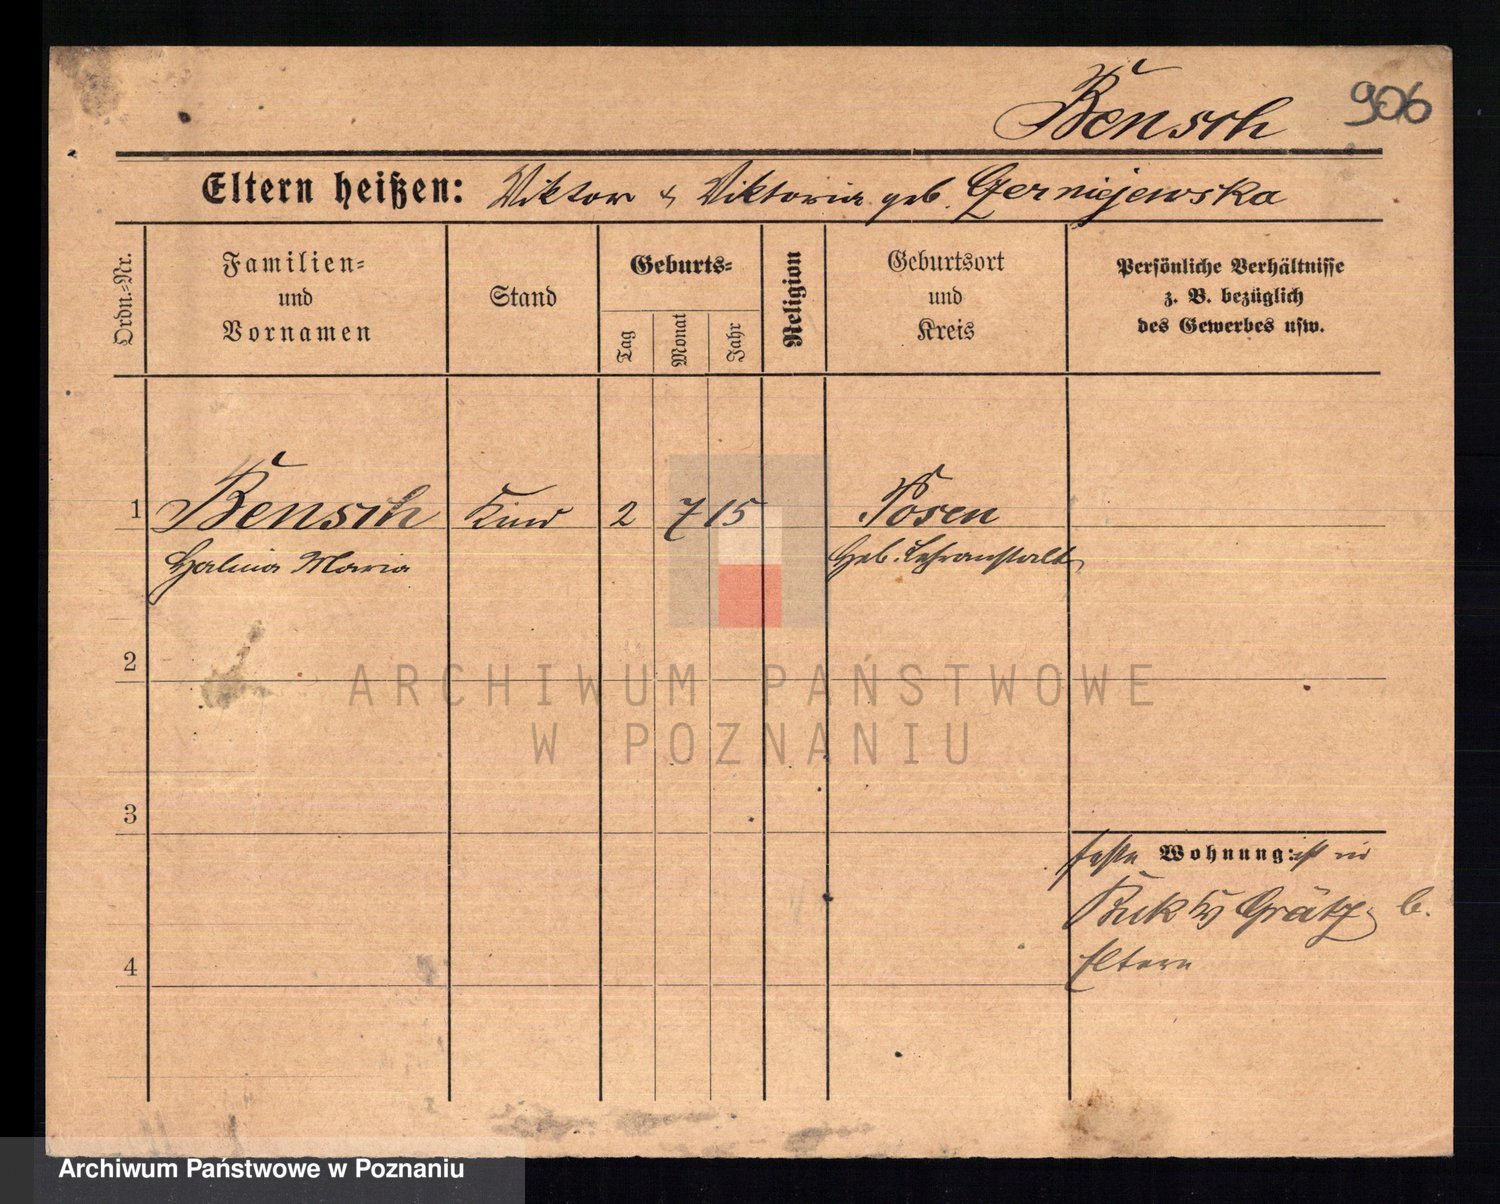 Bensch 906
Eltern heißen: Viktor & Viktoria geb. Czerniejewska
Ordn.-Nr.
Familien-
und
Vornamen
Stand
Geburts-
Tag
Monat
Jahr
Religion
Geburtsort
und
Kreis
Persönliche Verhältnisse
z. B. bezüglich
des Gewerbes usw.
1 Bensch Kind 2 7 15 Posen
Halina Maria Heb. Lehranstalt
2
ARCHIWUM PAŃSTWOWE
W POZNANIU
3
feste Wohnung: ist in
Buk Grätz b.
Eltern
4
Archiwum Państwowe w Poznaniu